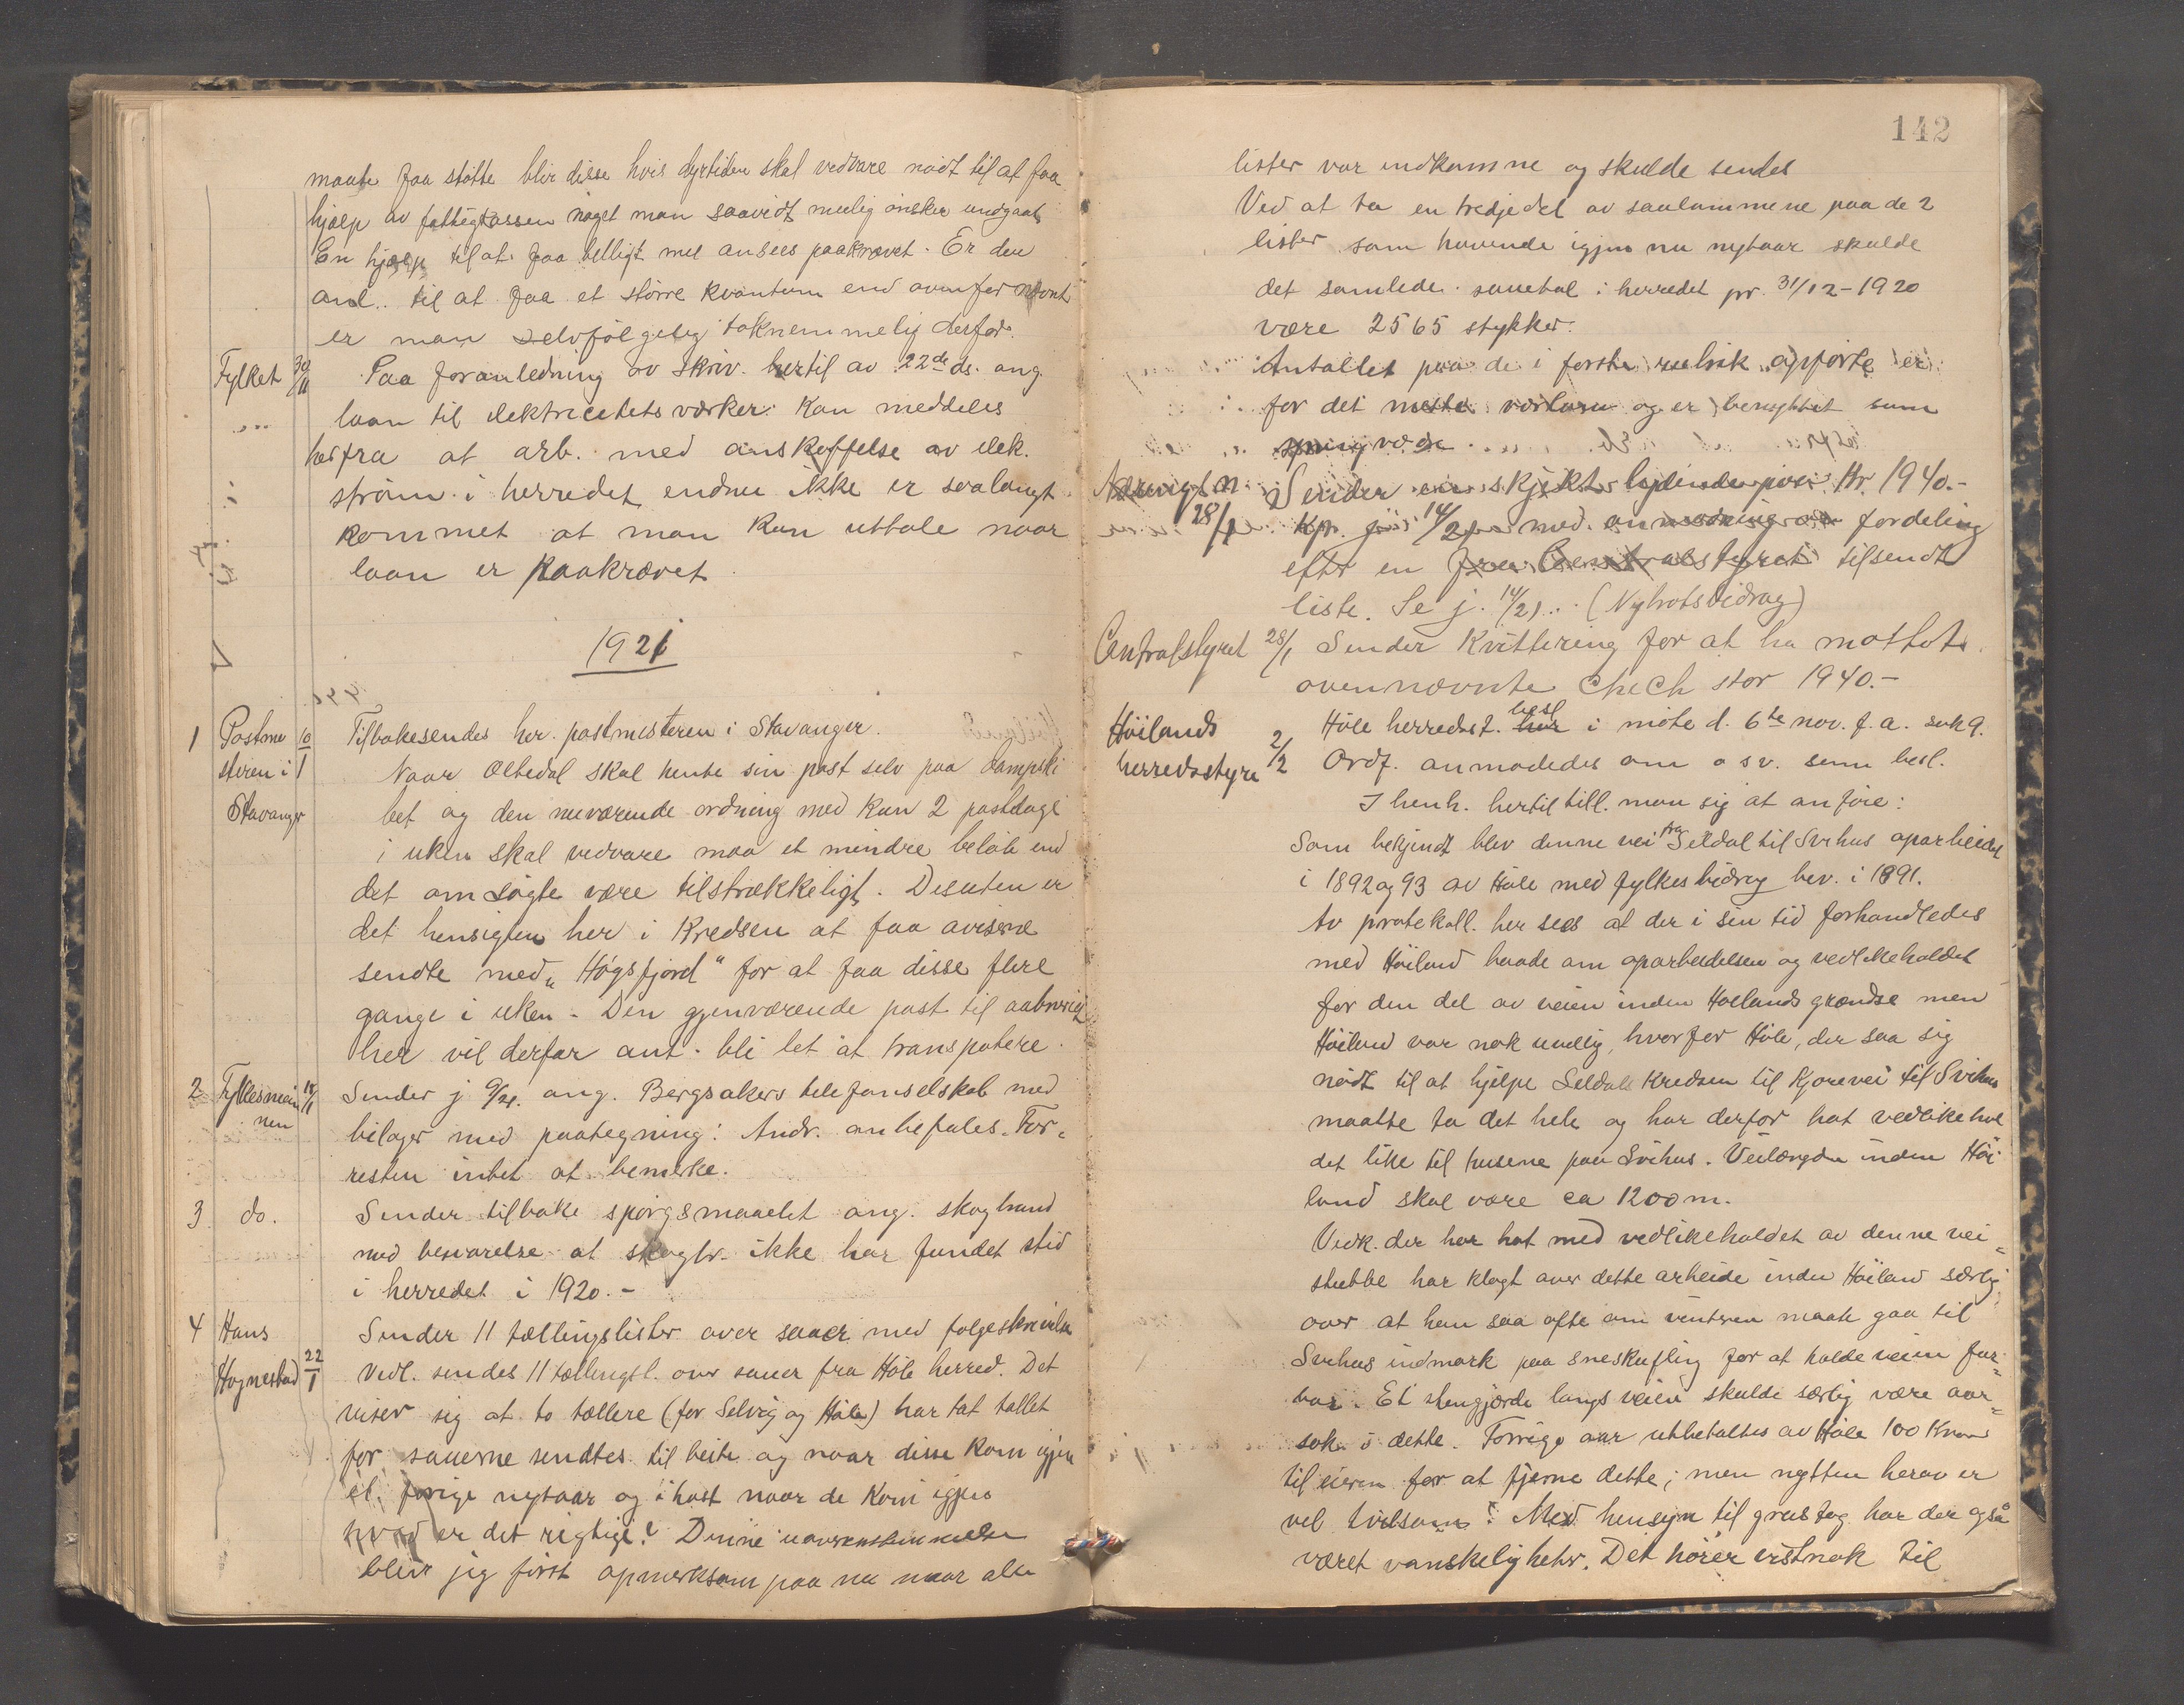 maate faa støtte blir disse hvis dyrtiden skal vedvare nødt til at faa
hjælp av fattigkassen noget man saavidt mulig ønsker undgaat
En hjælp til at faa billigt mel ansees paakrævet. Er den
anl. til at faa et større kvantum end ovenfor nævnt
er man selvfølgelig taknemmelig derfor.
Fylket 30/11 Paa foranledning av skriv. hertil av 22de ds. ang.
laan til elektricitetsværker kan meddeles
herfra at arb. med anskaffelse av elek.
strøm i herredet endnu ikke er saalangt
kommet at man kan uttale naar
laan er paakrævet.
1921
1 Postme 10/1 Tilbakesendes hr. postmesteren i Stavanger.
steren i Naar Oltedal skal hente sin post selv paa dampski
Stavanger bet og den nuværende ordning med kun 2 postdage
i uken skal vedvare maa et mindre beløb end
det omsøgte være tilstrækkeligt. Desuten er
det hensigten her i kredsen at faa aviserne
sendte med "Høgsfjord" for at faa disse flere
gange i uken. Den gjenværende post til
her vil derfor ant. bli let at transpotere.
2 Fylkesman 18/1 Sender j 9/21. ang. Bergsakers telefonselskab med
nen bilager med paategning: Andr. anbefales. For-
resten intet at bemerke.
3 do. Sender tilbake spørgsmaalet ang. skogbrand
med besvarelse at skogbr. ikke har fundet sted
i herredet i 1920.-
4 Hans Sender 11 tællingslister over sauer med følgeskrivelse
Hognestad 22/1 Vedl. sendes 11 tællingsl. over sauer fra Høle herred. Det
viser sig at to tællere (for Selvig og Høle) har tat tallet
før sauerne sendtes til beite og naar disse kom igjen
el. forrige nytaar og i høst naar de kom igjen
hvad er det rigtige? Denne uoverenstemmelse
blev jeg først opmerksom paa nu naar alle
142
lister var indkomne og skulde sendes
Ved at ta en tredjedel av saulammene paa de 2
lister som havende igjen nu nytaar skulde
det samlede sauetal i herredet pr. 31/12-1920
være 2565 stykker.
Antallet paa de i første rubrik opførte er
for det meste værlam og er benyttet som
Sender en skjekk lydende paa Kr. 1940.-
28/1 14/21 med anmodning om fordeling
efter en fra Centralstyret tilsendt
liste. Se j. 14/21. (Nybrotsbidrag)
Centralstyret 28/1 Sender kvittering for at ha mottat
ovennævnte check stor 1940.-
Høilands Høle herredst. her besl i møte d. 6te nov. f.a. sak 9.
herredsstyre 2/2 Ordf. anmodedes om osv. senn besl.
I henh. hertil till. man sig at anføre:
Som bekjendt blev denne vei fra Seldal til Svihus oparbeidet
i 1892 og 93 av Høle med fylkesbidrag bev. i 1891.
Av protokoll. her sees at der i sin tid forhandledes
med Høiland baade om oparbeidelsen og vedlikeholdet
for den del av veien inden Høilands grændse men
Høiland var nok uvillig, hvorfor Høle, der saa sig
nødt til at hjelpe Seldals kredsen til kjørevei til Svihus
maatte ta det hele og har derfor hat vedlikehol
det like til husene paa Svihus. Veilængden inden Høi
land skal være ca 1200 m.
Vedk. der har hat med vedlikeholdet av denne vei-
stubbe har klagt over dette arbeide inden Høiland særlig
over at han saa ofte om vinteren maate gaa til
Svihus indmark paa sneskufling for at holde veien far-
bar. Et stengjærde langs veien skulde særlig være aar-
sak i dette. Forrige aar utbetaltes av Høle 100 Kroner
til eieren for at fjerne dette; men nytten herav er
vel tvilsom. Med hensyn til grustag har der også
været vanskeligheter. Det hører vistnok til